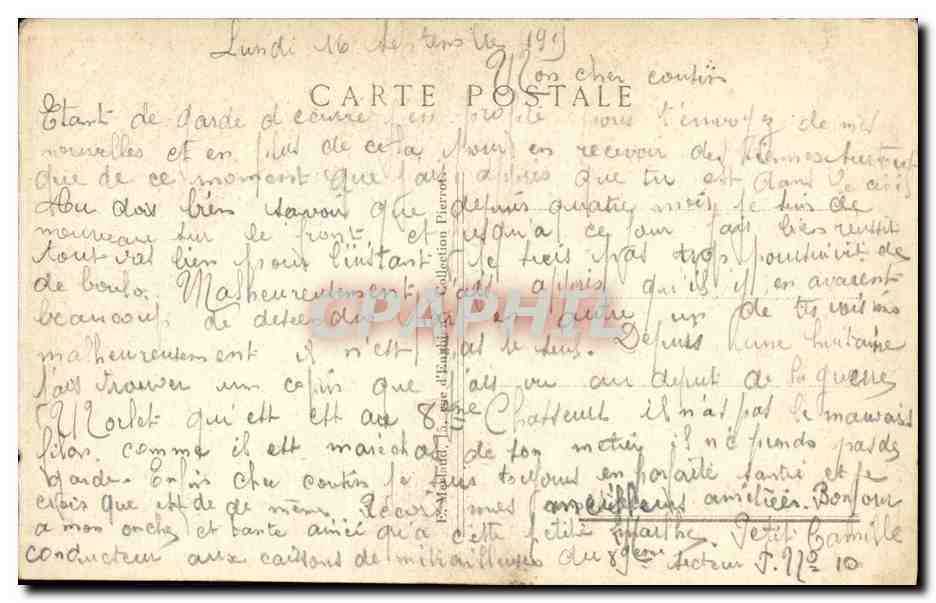 Lundi 16
Mon cher coutin
CARTE POSTALE
Etant de garde d ecurie j'en profite pour t'envoyez de mes
nouvelles et en plus de cela pour en recevoir des tiennes surtout
que de ce moment que j'ais appris que tu est dans le
tu dois bien savoir que depuis quatre mois je suis de
nouveau sur le front et jusqu'a ce jour j'ais bien reussit
tout vas bien pour l'instant je suis pas trop poursuivit de
de boulo. Malheureusement j'ais appris qu'ils il en avaient
beaucoup de au un de tes voisins
malheureusement il n'est pas le seul. Depuis une huitaine
j'ais trouver un copin que j'ais vu au deput de la guerre
Morlet qu'est est au 8eme Chasseurs il n'as pas le mauvais
filon comme il est marechal de son metier il ne prends pas de
garde. Enfin cher coutin je suis toujours en parfaite santé et je
crois que est de de même. Recois mes meilleurs amitiées. Bonjour
a mon oncle et tante ainci qu'a cette petite Marthe. Petit Camille
conducteur aux caissons de mitrailleuses du secteur P. No 10
E. Malland, 15, rue d'Enghien. Collection Pierrot.
CPAPHIL